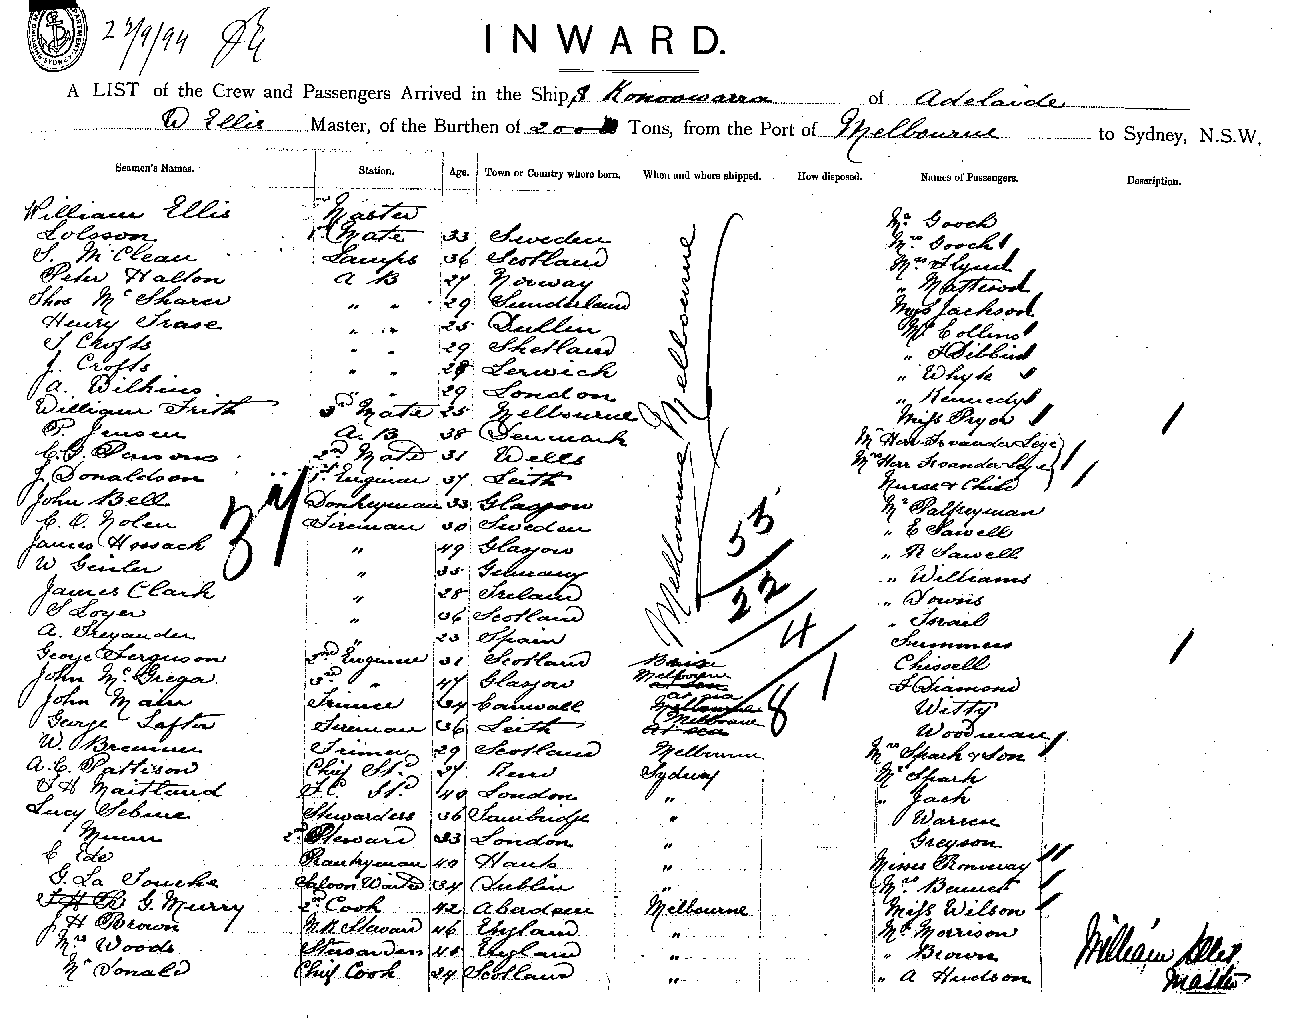 27/9/94
INWARD.
A LIST of the Crew and Passengers Arrived in the Ship S Konoowarra of Adelaide
W Ellis Master, of the Burthen of 200 Tons, from the Port of Melbourne to Sydney, N.S.W.
Seamen's Names. Station. Age. Town or Country where born. When and where shipped. How disposed. Names of Passengers. Description.
William Ellis Master Mr Gooch
Lolsson 1st Mate 33 Sweden Mrs Gooch
S. McClean Lamps 36 Scotland Mrs Flynn
Peter Halton A B 27 Norway " Mattison
Thos McSharer " " 29 Sunderland Miss Jackson
Henry Trase " " 25 Dublin Mr Collins
T Crofts " " 29 Shetland " Dibbin
J. Crofts " " 28 Lerwick " Whyte
A. Wilkins 29 London " Kennedy
William Frith 3rd Mate 25 Melbourne Miss Pryor
P. Jensen A. B 38 Denmark Mr Herr
C. G. Parsons 2nd Mate 31 Wells Mrs Herr
J Donaldson 1st Engineer 37 Leith Nurse & Child
John Bell Donkeyman 33 Glasgow Mr Palfreyman
C. O. Nolen Fireman 30 Sweden " E Sawell
James Hossack " 49 Glasgow " R Sawell
W Geisler " 35 Germany " Williams
James Clark " 28 Ireland " Downs
S Loyer " 36 Scotland " Israil
A. Treyander " 23 Spain Summers
George Ferguson 2nd Engineer 31 Scotland Chissell
John McGregor 3rd " 47 Glasgow Melbourne F Diamond
John Main Trimer 34 Cornwall at sea Witty
George Lafter Fireman 36 Leith Melbourne Woodman
W. Bremner Trimer 29 Scotland Melbourne Mr Spark & Son
A. E. Pattison Chief Std 27 Sydney Mr Spark
F H Maitland F. C. Std 40 London " " Jack
Lucy Sebine Stewardess 36 " Warren
Munn 2nd Steward 33 London " Greyson
E Ide Pantryman 40 " Misses Ronoway
G. La Touche Saloon Waiter 34 Dublin " Mrs Bennett
G. Murry 2nd Cook 42 Aberdeen Melbourne Miss Wilson
J H Brown Steward 46 England " Mr Morrison
Mrs Woods Stewardess 40 England " " Brown
McDonald Chief Cook 34 Scotland " " A Hudson
Melbourne Melbourne
34
53
22
4
8 1
William Ellis
Master